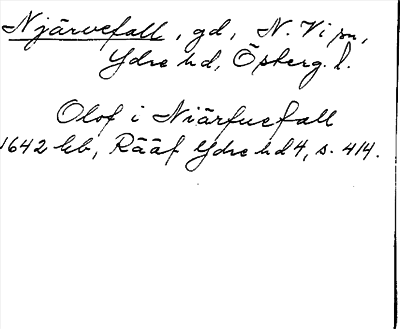 Njärvefall, gd, N. Vi sn,
Ydre hd, Österg. l.
Olof i Niärfuefall
1642 kb, Rääf Ydre hd 4, s. 414.